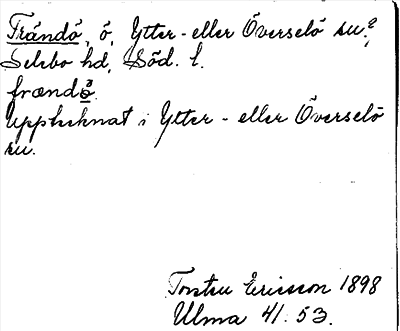 Frändö, ö, Ytter- eller Överselö sn?,
Selebo hd, Söd. l.
frændö
Upptecknat i Ytter- eller Överselö
sn.
Torsten Ericsson 1898
Ulma 41. 53.